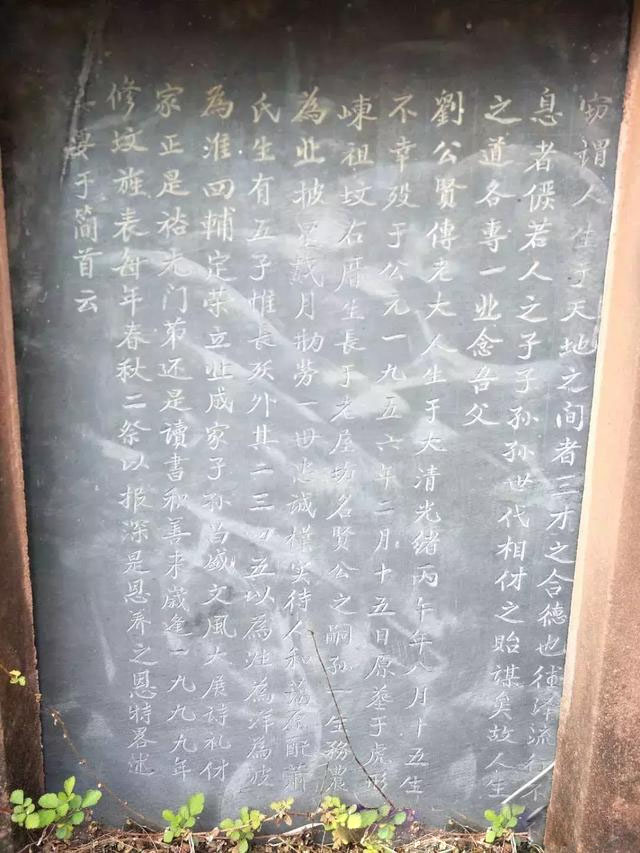 窃谓人生于天地之间者三才之合德也德泽流行不
息者俟若人之子子孙孙世代相付之贻谋矣故人生
之道各専一业念吾父
劉公賢傳老大人生于大清光緒丙午年八月十五生
不幸殁于公元一九五六年二月十五日原塟于虎形
崠祖坟右厝生長于老屋坊名賢公之嗣孙一生務農
為业披星戴月劬劳一世忠誠樸实待人和蔼原配蕭
氏生有五子惟長殀外其二三四五以為 為洋為波
為淮四輔定荣立业成家子孙昌盛文風大展詩礼付
家正是裕光门第还是讀書和善来歲逢一九九九年
修坟旌表每年春秋二祭以报深是恩养之恩特畧述
要于简首云